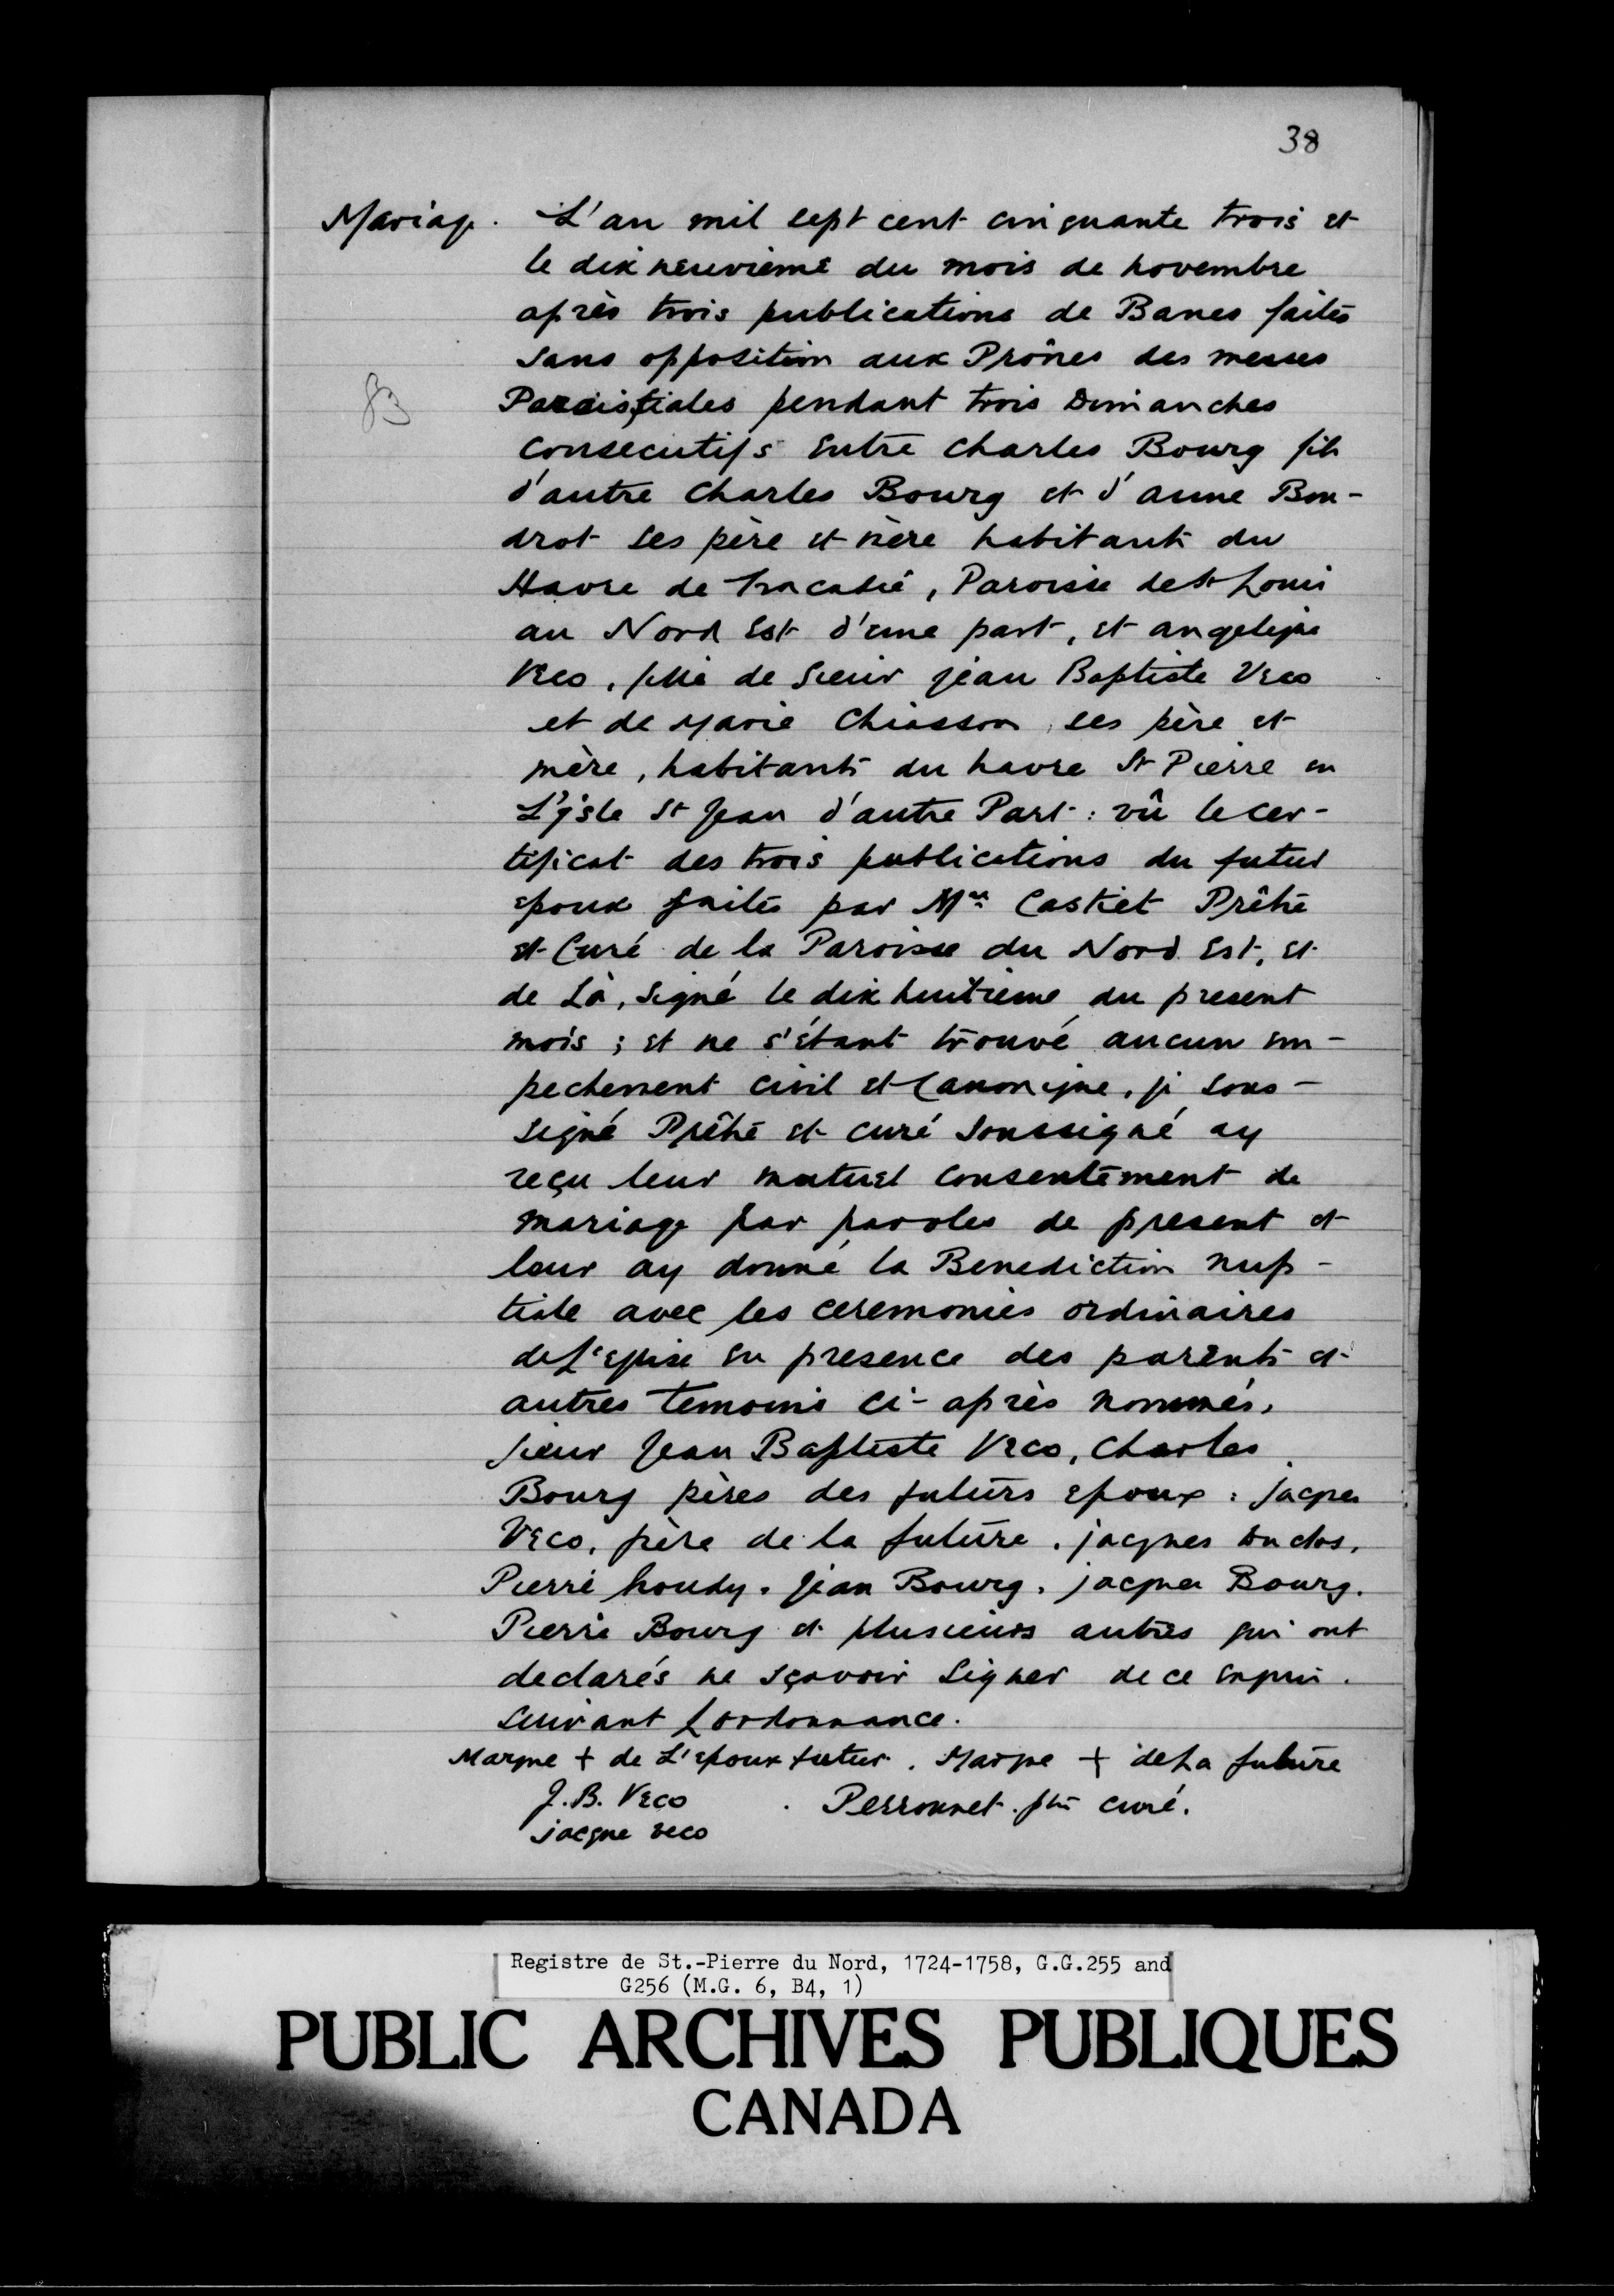 38
Mariage. L'an mil sept cent cinquante trois et
le dix neuvieme du mois de novembre
après trois publications de Banes faites
sans opposition aux Prônes des messes
Paroissiales pendant trois Dimanches
consecutifs entre Charles Bourg fils
d'autre Charles Bourg et d'anne Bou-
drot ses père et mère habitants du
Havre de Tracadie, Paroisse de St Louis
au Nord Est d'une part, et angelique
Veco, fille de Sieur jean Baptiste Veco
et de Marie Chiasson ses père et
mère, habitants du havre St Pierre en
L'jsle St Jean d'autre Part: vû le cer-
tificat des trois publications du futur
epoux faites par Mre Castiet Prêtre
et Curé de la Paroisse du Nord Est, et
de Là, signé le dix huitieme du present
mois; et ne s'étant trouvé aucun em-
pechement civil et Canonique, je sous-
signé Prêtre et curé soussigné ay
reçu leur mutuel consentement de
mariage par paroles de present et
leur ay donné la Benediction nup-
tiale avec les ceremonies ordinaires
de L'eglise en presence des parents et
autres temoins ci-après nommés,
sieur Jean Baptiste Veco, Charles
Bourg pères des futurs epoux: jacques
Veco, père de la future. jacques Duclos,
Pierre houdy. jean Bourg. jacques Bourg.
Pierre Bourg et plusieurs autres qui ont
declarés ne sçavoir signer de ce enquis.
suivant Lordonnance.
Marque + de L'epoux futur. Marque + de La future
J. B. Veco . Perronnet. ptre curé.
jacque veco
Registre de St.-Pierre du Nord, 1724-1758, G.G.255 and
G256 (M.G. 6, B4, 1)
PUBLIC ARCHIVES PUBLIQUES
CANADA